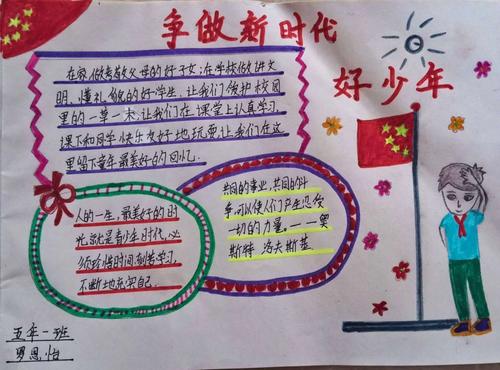 争做新时代
好少年
在家做孝敬父母的好子女;在学校做讲文
明、懂礼貌的好学生,让我们做护校园
里的一草一木,让我们在课堂上认真学习,
课下和同学快乐友好地玩耍,让我们在这
里留下童年最美好的回忆.
共同的事业,共同的斗
争,可以使人们产生忍受
一切的力量。——奥
斯特洛夫斯基
人的一生,最美好的时
光就是青少年时代,必
须珍惜时间,刻苦学习,
不断地充实自己.
五年一班
罗恩怡